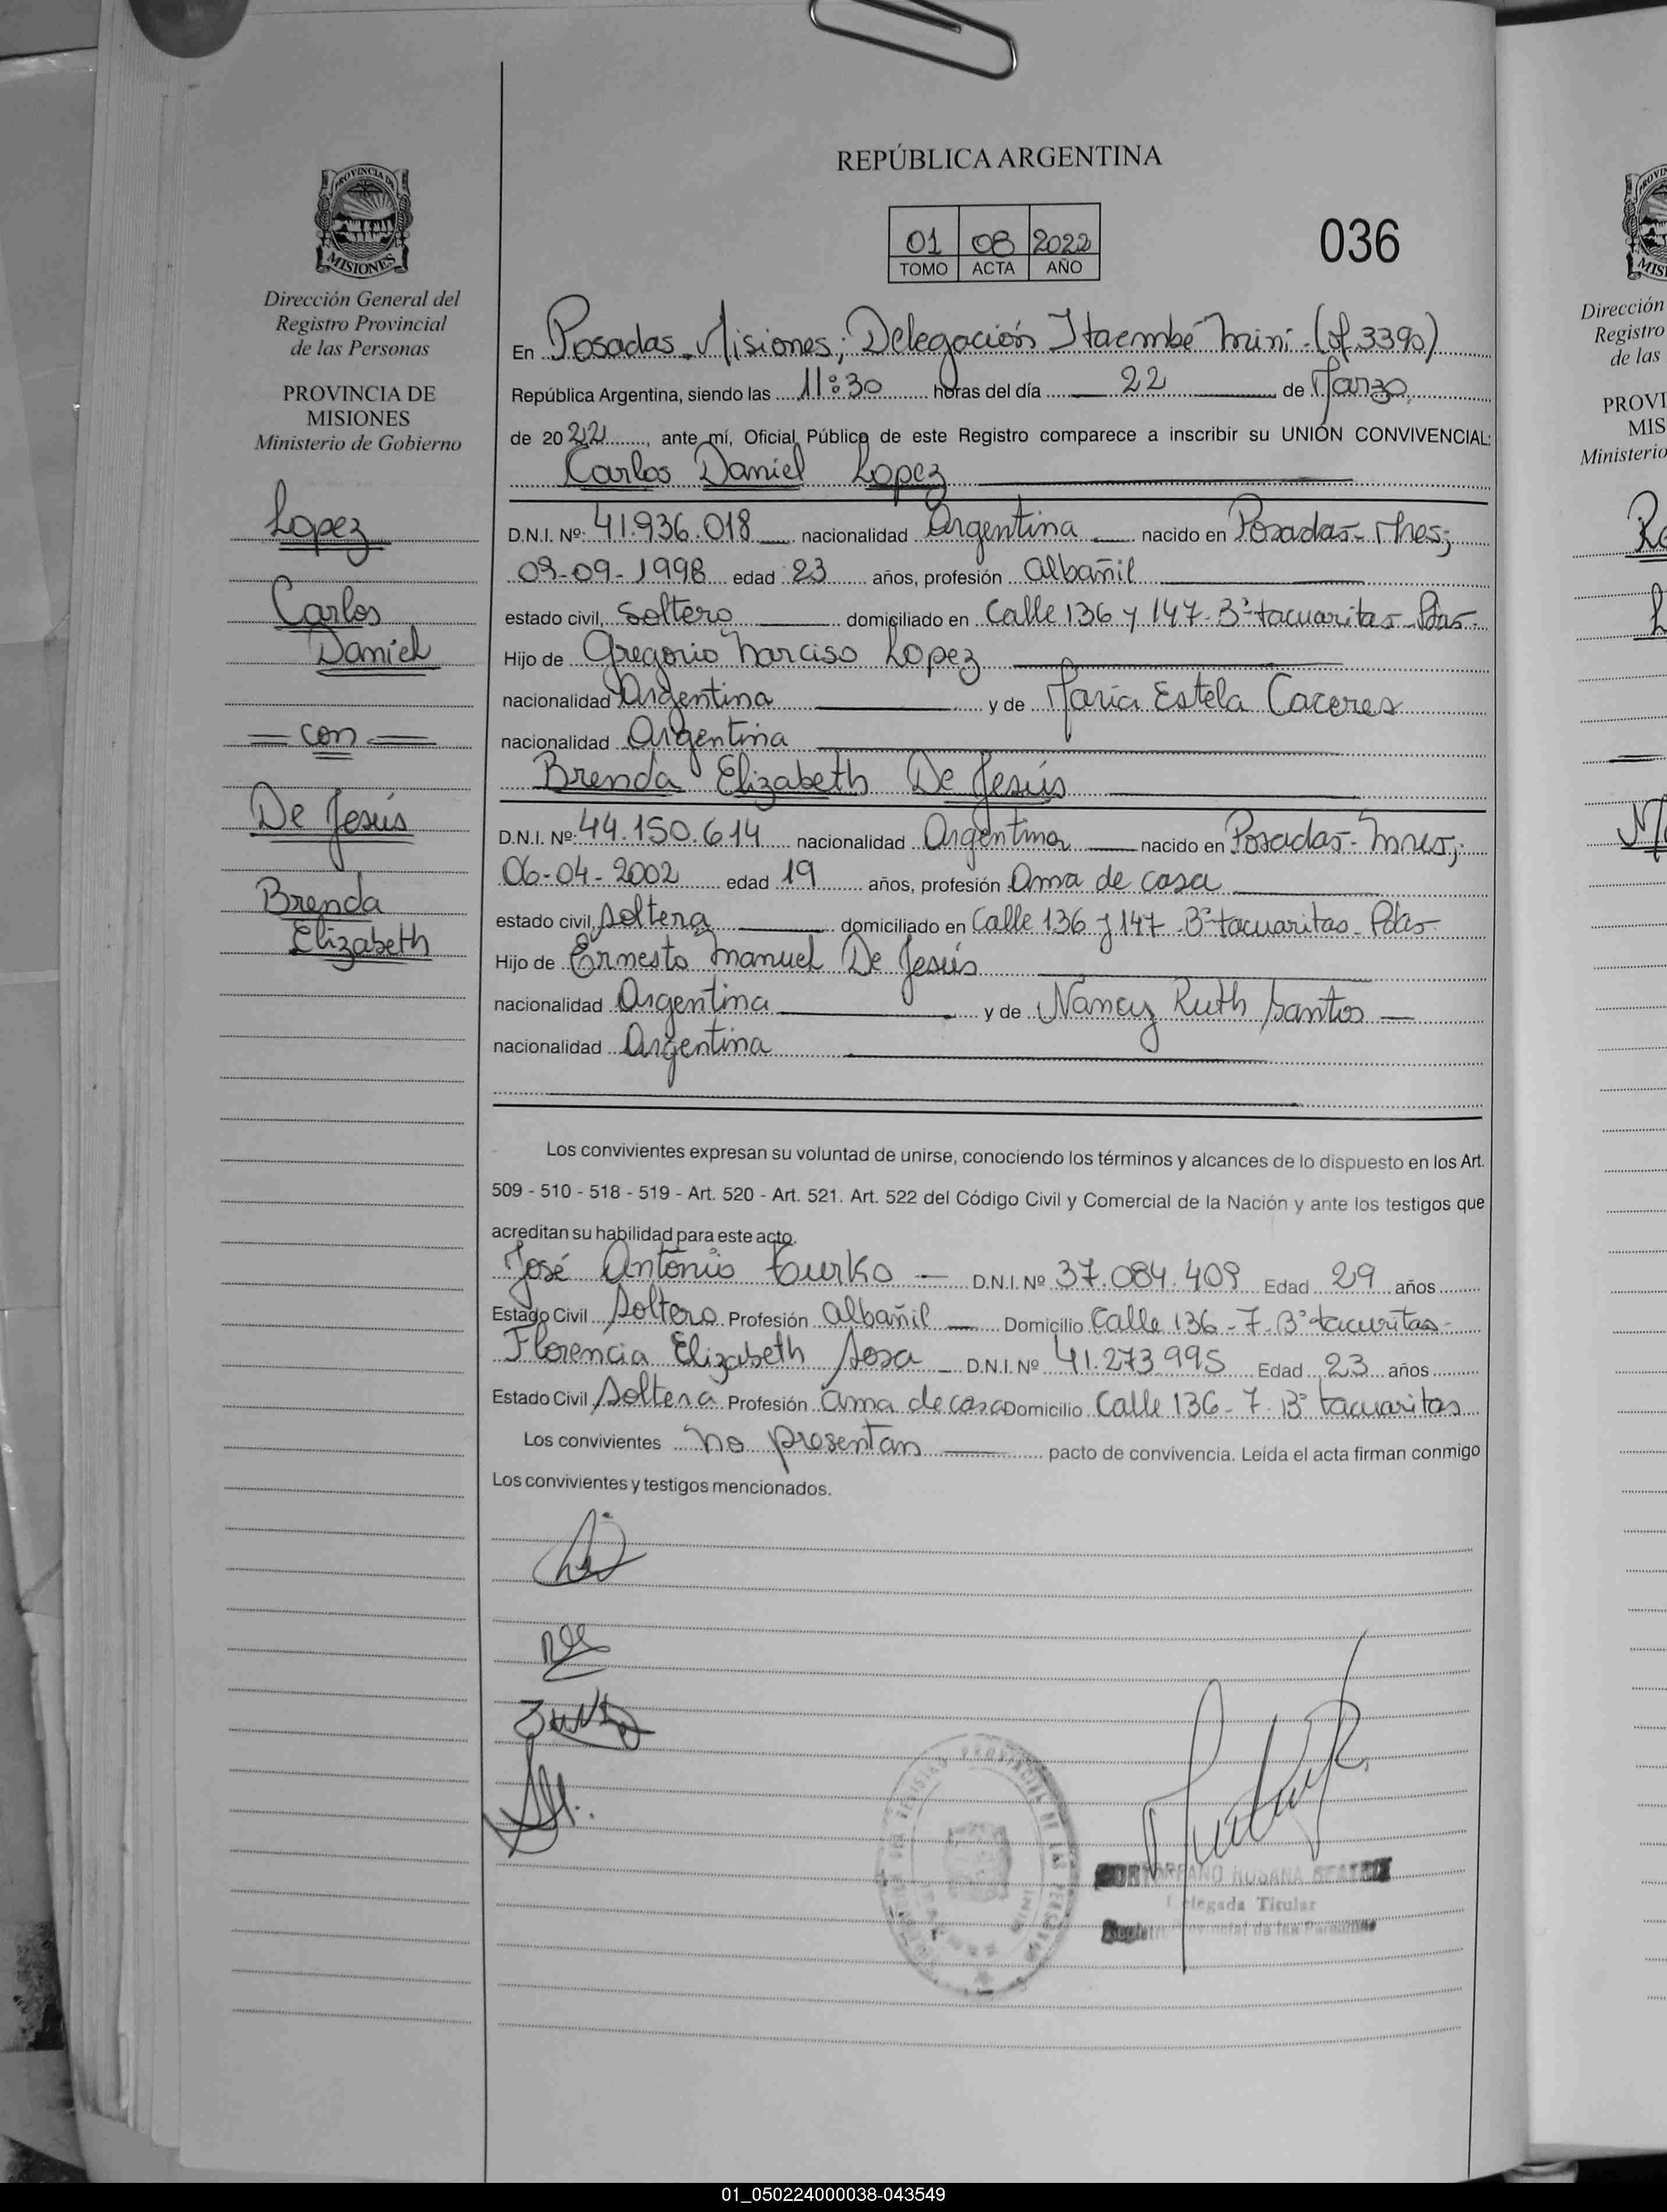 REPÚBLICA ARGENTINA
01 08 2022
TOMO ACTA AÑO
036
PROVINCIA DE
MISIONES
Dirección General del
Registro Provincial
de las Personas
PROVINCIA DE
MISIONES
Ministerio de Gobierno
Lopez
Carlos
Daniel
= con =
De Jesús
Brenda
Elizabeth
En Posadas Misiones; Delegación Itaembé Mini - (of. 3390)
República Argentina, siendo las 11:30 horas del día 22 de Marzo
de 2022, ante mí, Oficial Público de este Registro comparece a inscribir su UNIÓN CONVIVENCIAL:
Carlos Daniel Lopez
D.N.I. Nº: 41.936.018 nacionalidad Argentina nacido en Posadas - Mnes;
09-09-1998 edad 23 años, profesión Albañil
estado civil, Soltero domiciliado en Calle 136 y 147 - Bº tacuaritas - Pdas -
Hijo de Gregorio Narciso Lopez
nacionalidad Argentina y de Maria Estela Caceres
nacionalidad Argentina
Brenda Elizabeth De Jesús
D.N.I. Nº: 44.150.614 nacionalidad Argentina nacido en Posadas - Mnes;
06-04-2002 edad 19 años, profesión Ama de casa
estado civil, Soltera domiciliado en Calle 136 y 147 - Bº tacuaritas - Pdas -
Hijo de Ernesto Manuel De Jesús
nacionalidad Argentina y de Nancy Ruth Santos
nacionalidad Argentina
Los convivientes expresan su voluntad de unirse, conociendo los términos y alcances de lo dispuesto en los Art.
509 - 510 - 518 - 519 - Art. 520 - Art. 521. Art. 522 del Código Civil y Comercial de la Nación y ante los testigos que
acreditan su habilidad para este acto.
José Antonio Turko - D.N.I. Nº 37.084.409 Edad 29 años
Estado Civil Soltero Profesión Albañil Domicilio Calle 136 - 7 - Bº tacuritas -
Florencia Elizabeth Sosa - D.N.I. Nº 41.273995 Edad 23 años
Estado Civil Soltera Profesión Ama de casa Domicilio Calle 136 - 7 - Bº tacuaritas
Los convivientes no presentan pacto de convivencia. Leída el acta firman conmigo
Los convivientes y testigos mencionados.
ROSANA BEATRIZ
Delegada Titular
Registro Provincial de las Personas
Dirección
Registro
de las
PROVI
MIS
Ministerio
01_050224000038-043549